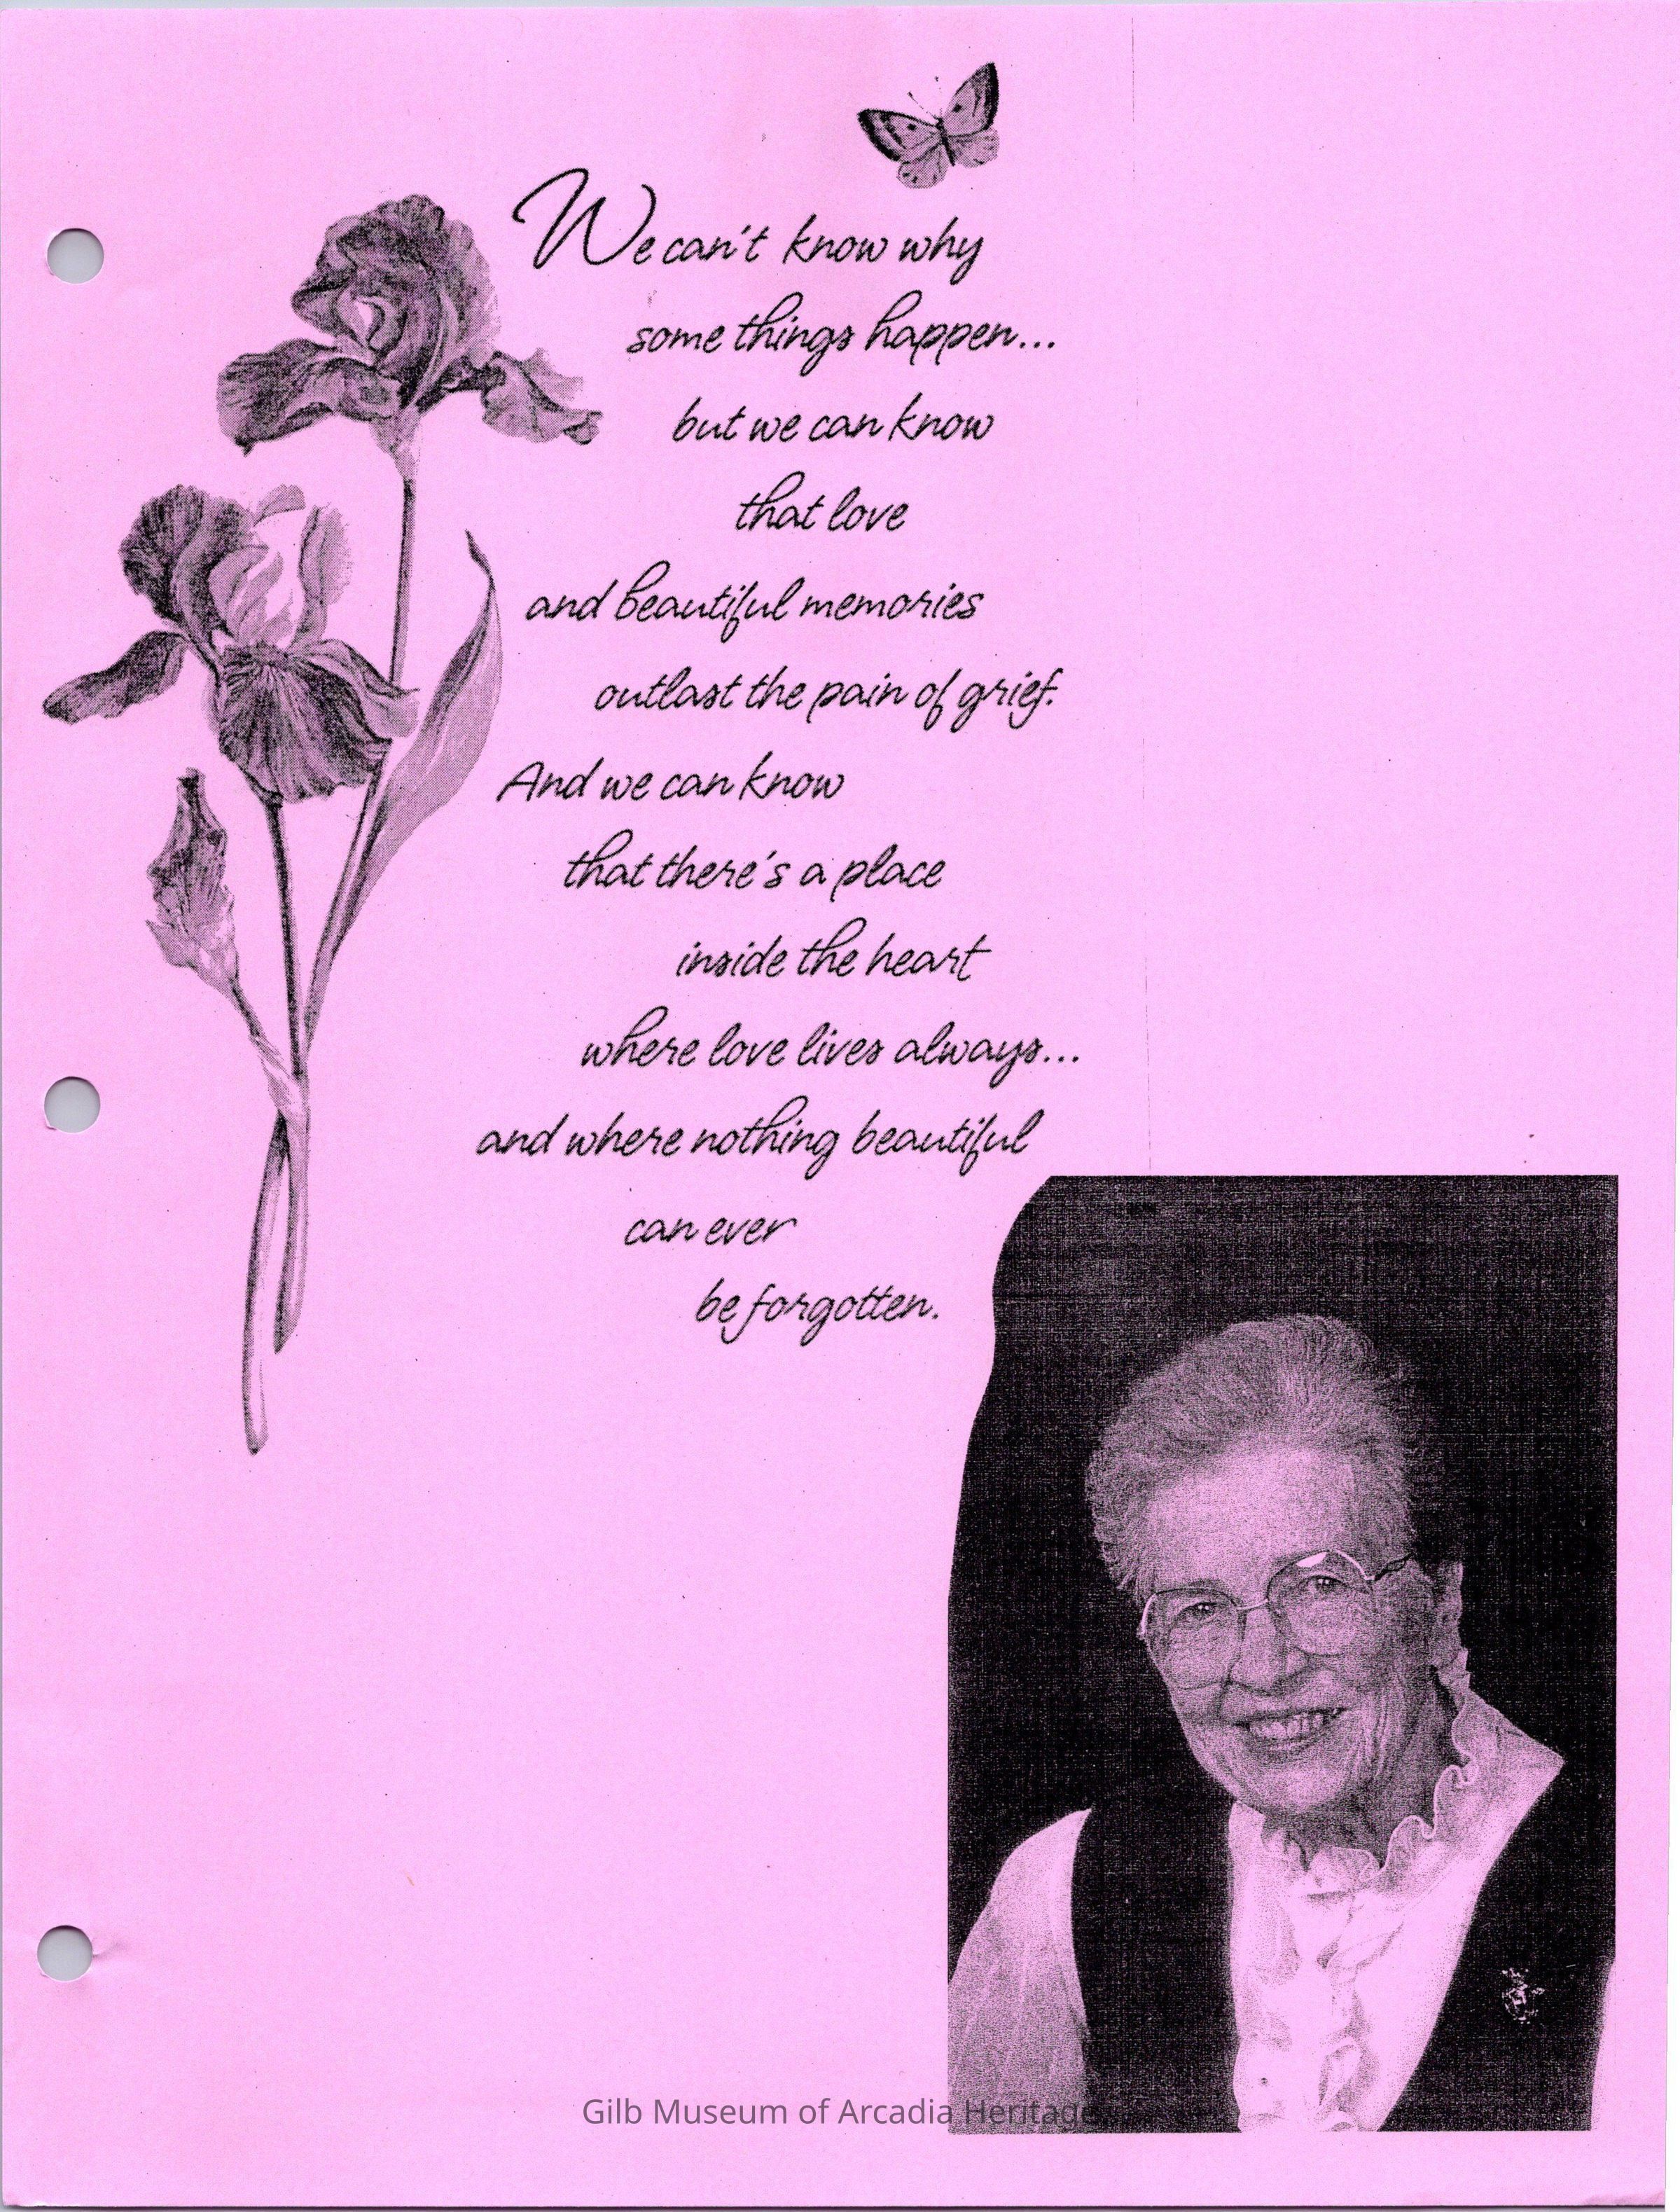 We can't know why
some things happen...
but we can know
that love
and beautiful memories
outlast the pain of grief.
And we can know
that there's a place
inside the heart
where love lives always...
and where nothing beautiful
can ever
be forgotten.
Gilb Museum of Arcadia Heritage